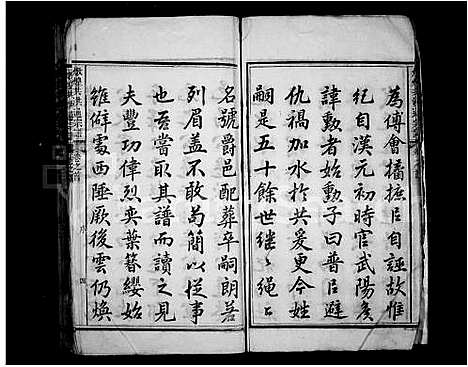 為傅會摭摭臣自誣故惟
紀自漢元初時官武陽矦
諱勲者始勲子曰普臣避
仇禍加水於共爰更今姓
嗣是五十餘世繼〻繩〻
名號爵邑配葬卒嗣朗若
列眉蓋不敢苟簡以從事
也吾嘗取其譜而讀之見
夫豐功偉烈奕葉簪纓始
雖僻處西陲厥後雲仍煥
敦煌洪氏通宗譜
序
四